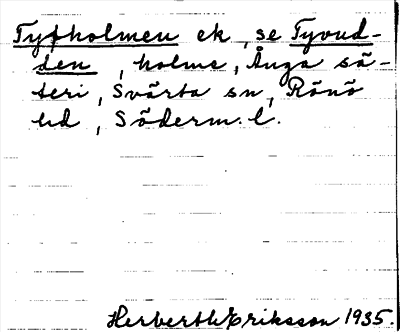 Tyfholmen ek, se Tyvud-
den, holme, Ånga sä-
teri, Svärta sn, Rönö
hd, Söderm. l.
Herberth Eriksson 1935